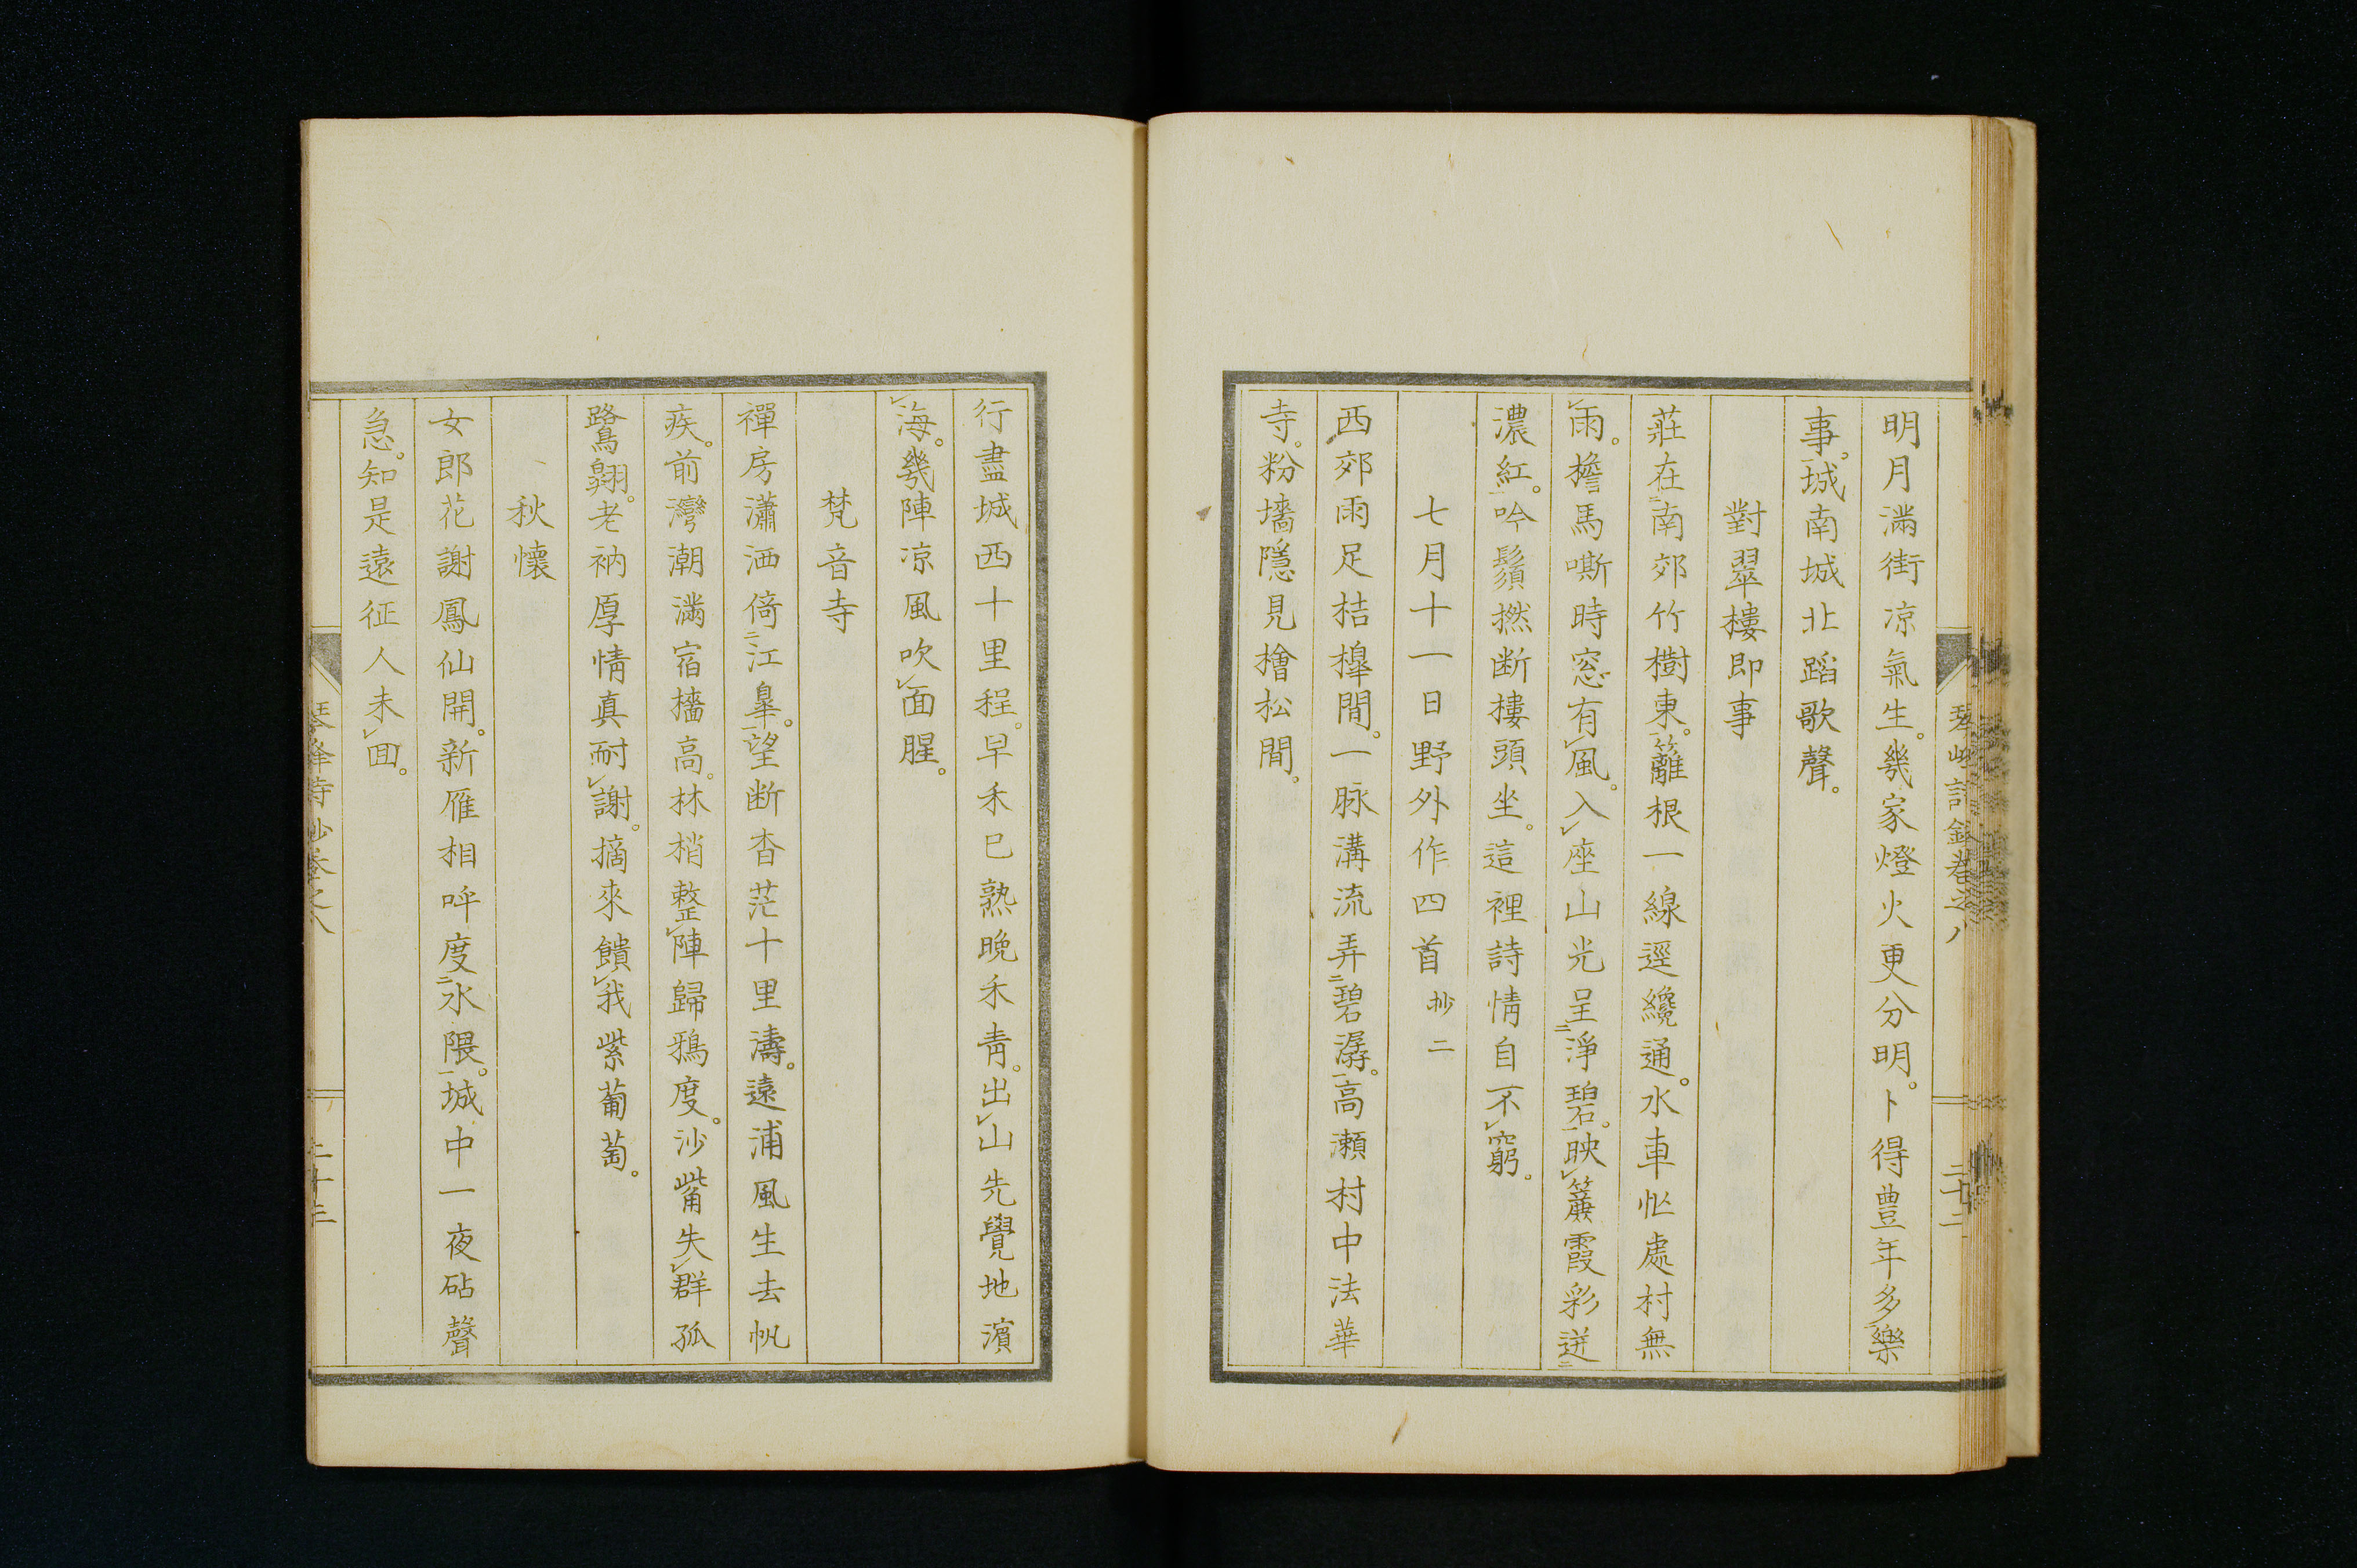 明月滿街凉氣生。幾家燈火更分明。卜得豊年多樂
事。城南城北蹈歌聲。
對翠樓即事
莊在南郊竹樹東。籬根一線逕纔通。水車忙處村無
雨。檐馬嘶時窓有風。入座山光呈淨碧。映簾霞彩迸
濃紅。吟鬚撚断樓頭坐。這裡詩情自不窮。
七月十一日野外作四首 抄二
西郊雨足桔槹閒。一脉溝流弄碧潺。高瀬村中法華
寺。粉墻隱見檜松間。
二十二
行盡城西十里程。早禾已熟晚禾靑。出山先覺地濱
海。幾陣凉風吹面腥。
梵音寺
禪房瀟洒倚江皐。望断杳茫十里濤。遠浦風生去帆
疾。前灣潮滿宿檣高。林梢整陣歸鴉度。沙觜失群孤
鷺翱。老衲厚情真耐謝。摘來饋我紫葡萄。
秋懷
女郎花謝鳳仙開。新雁相呼度水隈。城中一夜砧聲
急。知是遠征人未回。
二十三